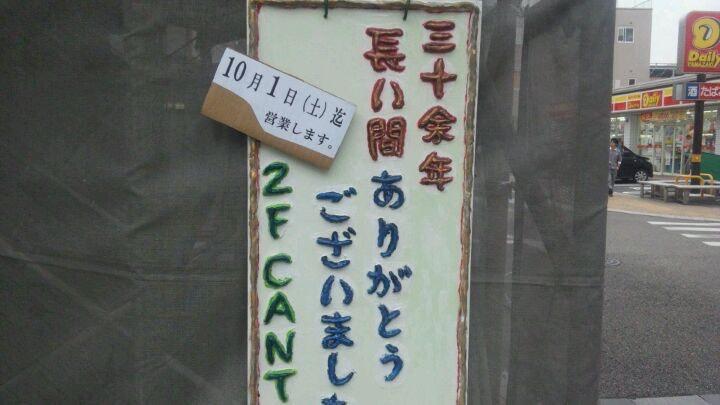 三十余年
長い間ありがとう
ございました
2F CANT
10月1日(土)迄
営業します。
Daily
YAMAZAKI
Daily
酒 たばこ